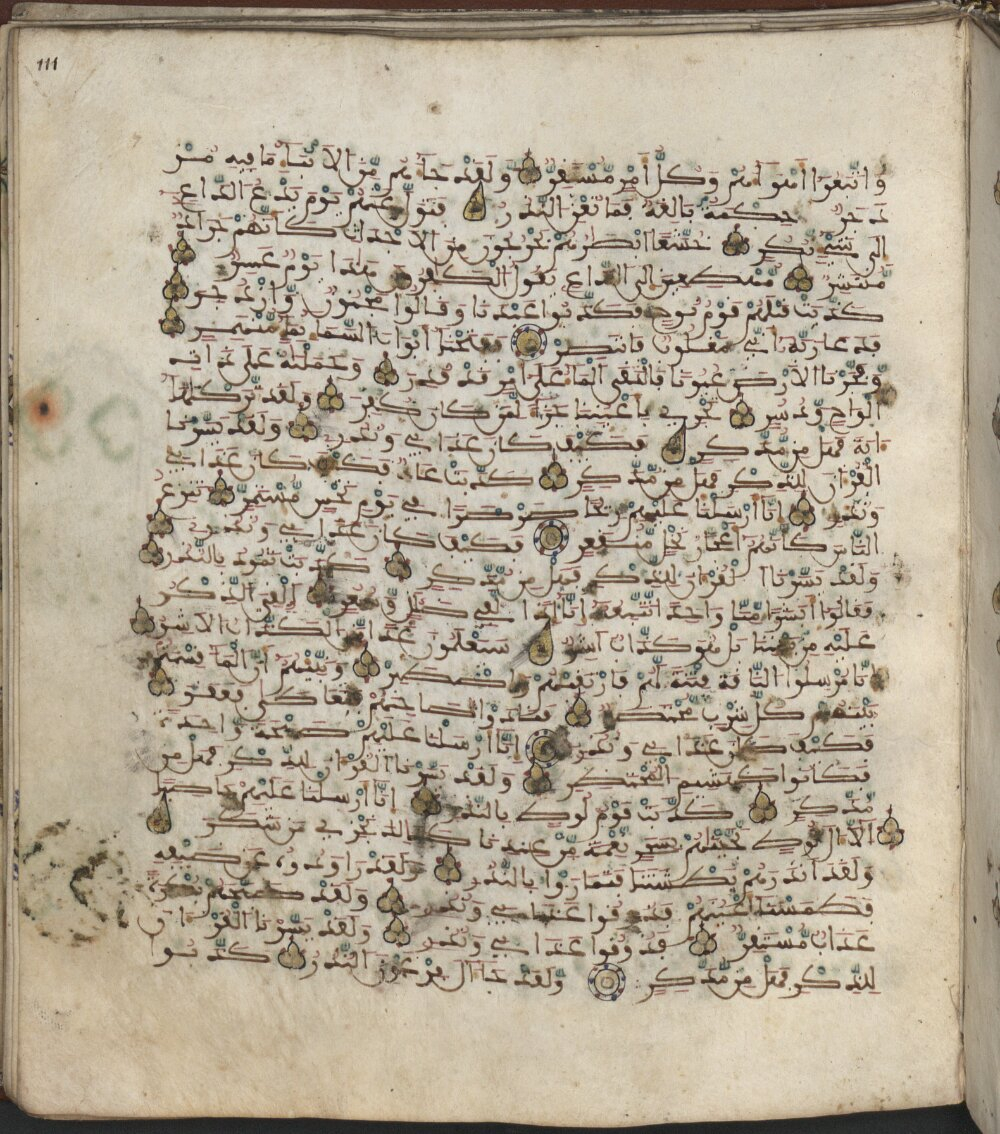 111
واتبعوا أهواءهم وكل أمر مستقر ولقد جاءهم من الأنباء ما فيه مز
دجر حكمة بالغة فما تغن النذر فتول عنهم يوم يدع الداع
إلى شيء نكر خشعا أبصارهم يخرجون من الأجداث كأنهم جراد
منتشر مهطعين إلى الداع يقول الكفرون هذا يوم عسر
كذبت قبلهم قوم نوح فكذبوا عبدنا وقالوا مجنون وازدجر
فدعا ربه أني مغلوب فانتصر ففتحنا أبواب السماء بماء منهمر
وفجرنا الأرض عيونا فالتقى الماء على أمر قد قدر وحملنه على ذات
ألواح ودسر تجري بأعيننا جزاء لمن كان كفر ولقد تركنها
ءاية فهل من مدكر فكيف كان عذابي ونذر ولقد يسرنا
القرءان للذكر فهل من مدكر كذبت عاد فكيف كان عذابي
ونذر إنا أرسلنا عليهم ريحا صرصرا في يوم نحس مستمر تنزع
الناس كأنهم أعجاز نخل منقعر فكيف كان عذابي ونذر
ولقد يسرنا القرءان للذكر فهل من مدكر كذبت ثمود بالنذر
فقالوا أبشرا منا واحدا نتبعه إنا إذا لفي ضلل وسعر أءلقي الذكر
عليه من بيننا بل هو كذاب أشر سيعلمون غدا من الكذاب الأشر
إنا مرسلوا الناقة فتنة لهم فارتقبهم واصطبر ونبئهم أن الماء قسمة
بينهم كل شرب محتضر فنادوا صاحبهم فتعاطى فعقر
فكيف كان عذابي ونذر إنا أرسلنا عليهم صيحة واحدة
فكانوا كهشيم المحتظر ولقد يسرنا القرءان للذكر فهل من
مدكر كذبت قوم لوط بالنذر إنا أرسلنا عليهم حاصبا
إلا ءال لوط نجينهم بسحر نعمة من عندنا كذلك نجزي من شكر
ولقد أنذرهم بطشتنا فتماروا بالنذر ولقد راودوه عن ضيفه
فطمسنا أعينهم فذوقوا عذابي ونذر ولقد صبحهم بكرة
عذاب مستقر فذوقوا عذابي ونذر ولقد يسرنا القرءان
للذكر فهل من مدكر ولقد جاء ءال فرعون النذر كذبوا